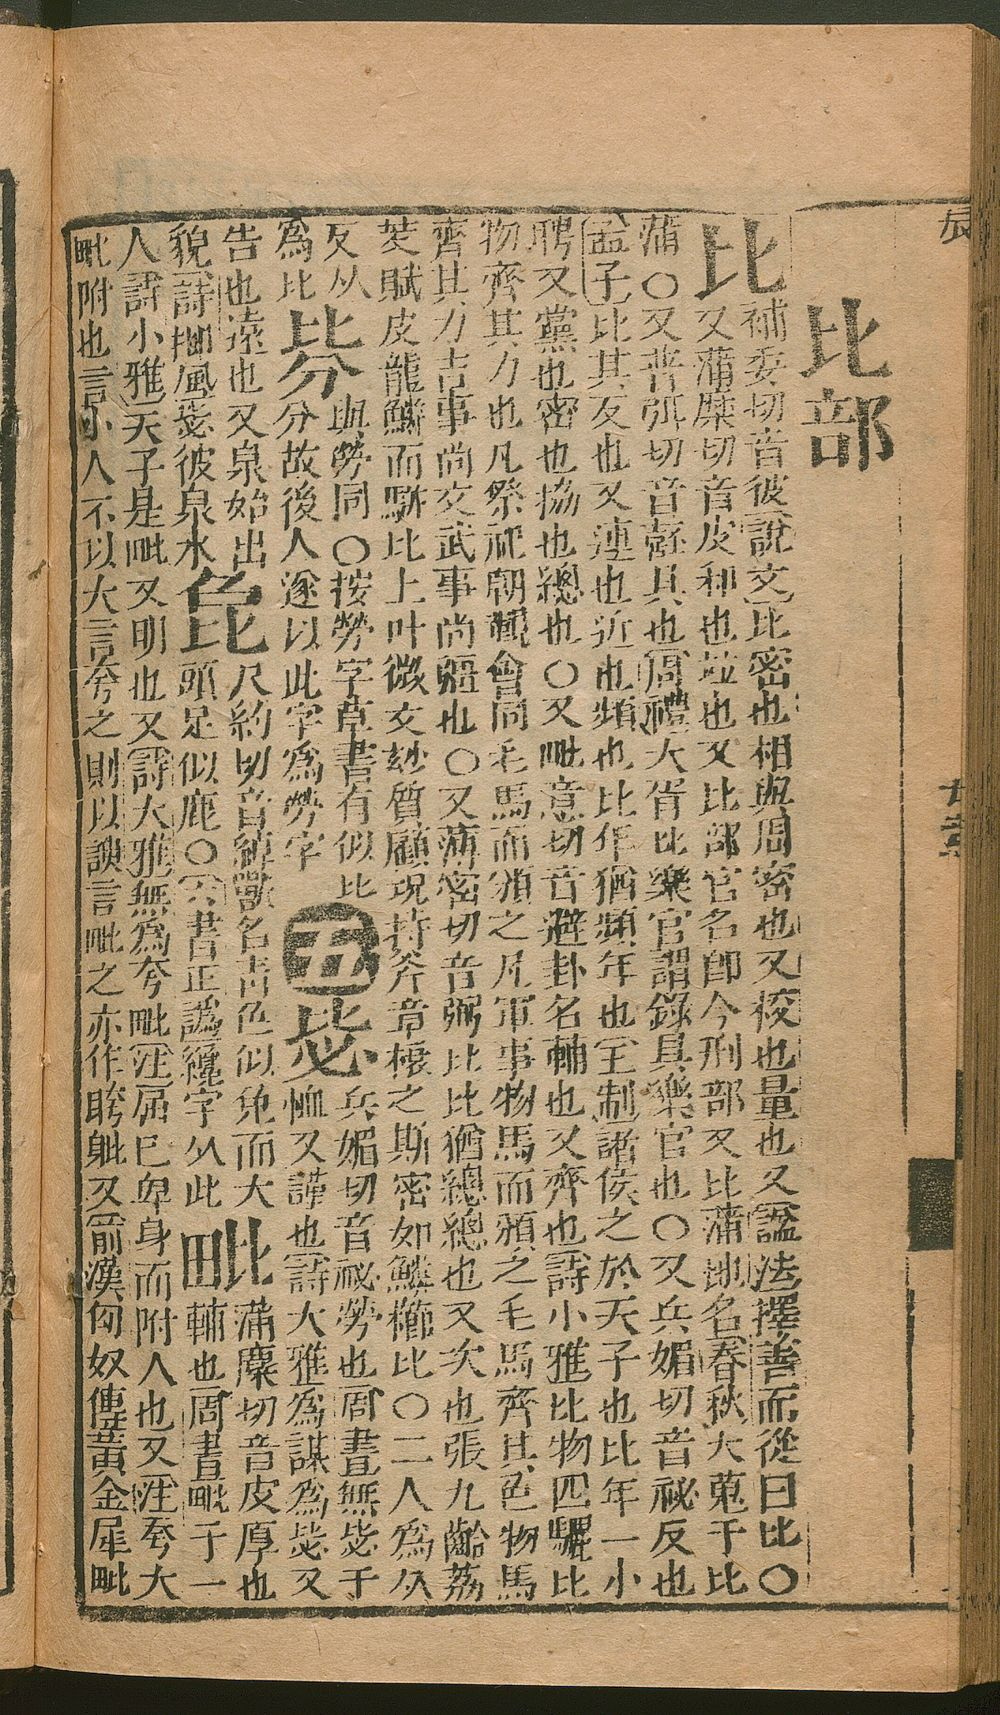 比部
比補委切音彼說文比密也相與周密也又校也量也又諡法擇善而從曰比〇
又蒲糜切音皮和也竝也又比部官名卽今刑部又比蒲地名春秋大蒐于比
蒲〇又普弭切音嚭具也周禮大胥比樂官謂錄具樂官也〇又兵媚切音祕反也
孟子比其反也又連也近也頻也比年猶頻年也王制諸侯之於天子也比年一小
聘又黨也密也協也總也〇又毗意切音避卦名輔也又齊也詩小雅比物四驪比
物齊其力也凡祭祀朝覲會同毛馬而頒之凡軍事物馬而頒之毛馬齊其色物馬
齊其力吉事尚文武事尚彊也〇又薄密切音弼比比猶總總也又次也張九齡荔
芰賦皮龍鱗而駢比上叶微文妙質顧現持斧章棲之斯密如鱗櫛比〇二人為从
反从
為比
與勞同〇按勞字草書有似比
分故後人遂以此字為勞字
五
毖兵媚切音祕勞也周書無毖于
恤又謹也詩大雅為謀為毖又
告也遠也又泉始出
貌詩邶風毖彼泉水
㲋尺約切音綽獸名青色似兔而大
頭足似鹿〇六書正譌纔字从此
毗蒲麋切音皮厚也
輔也周書毗于一
人詩小雅天子是毗又明也又詩大雅無為夸毗注屈已卑身而附人也又注夸大
毗附也言小人不以大言夸之則以諛言毗之亦作又前漢匈奴傳黃金犀毗
辰